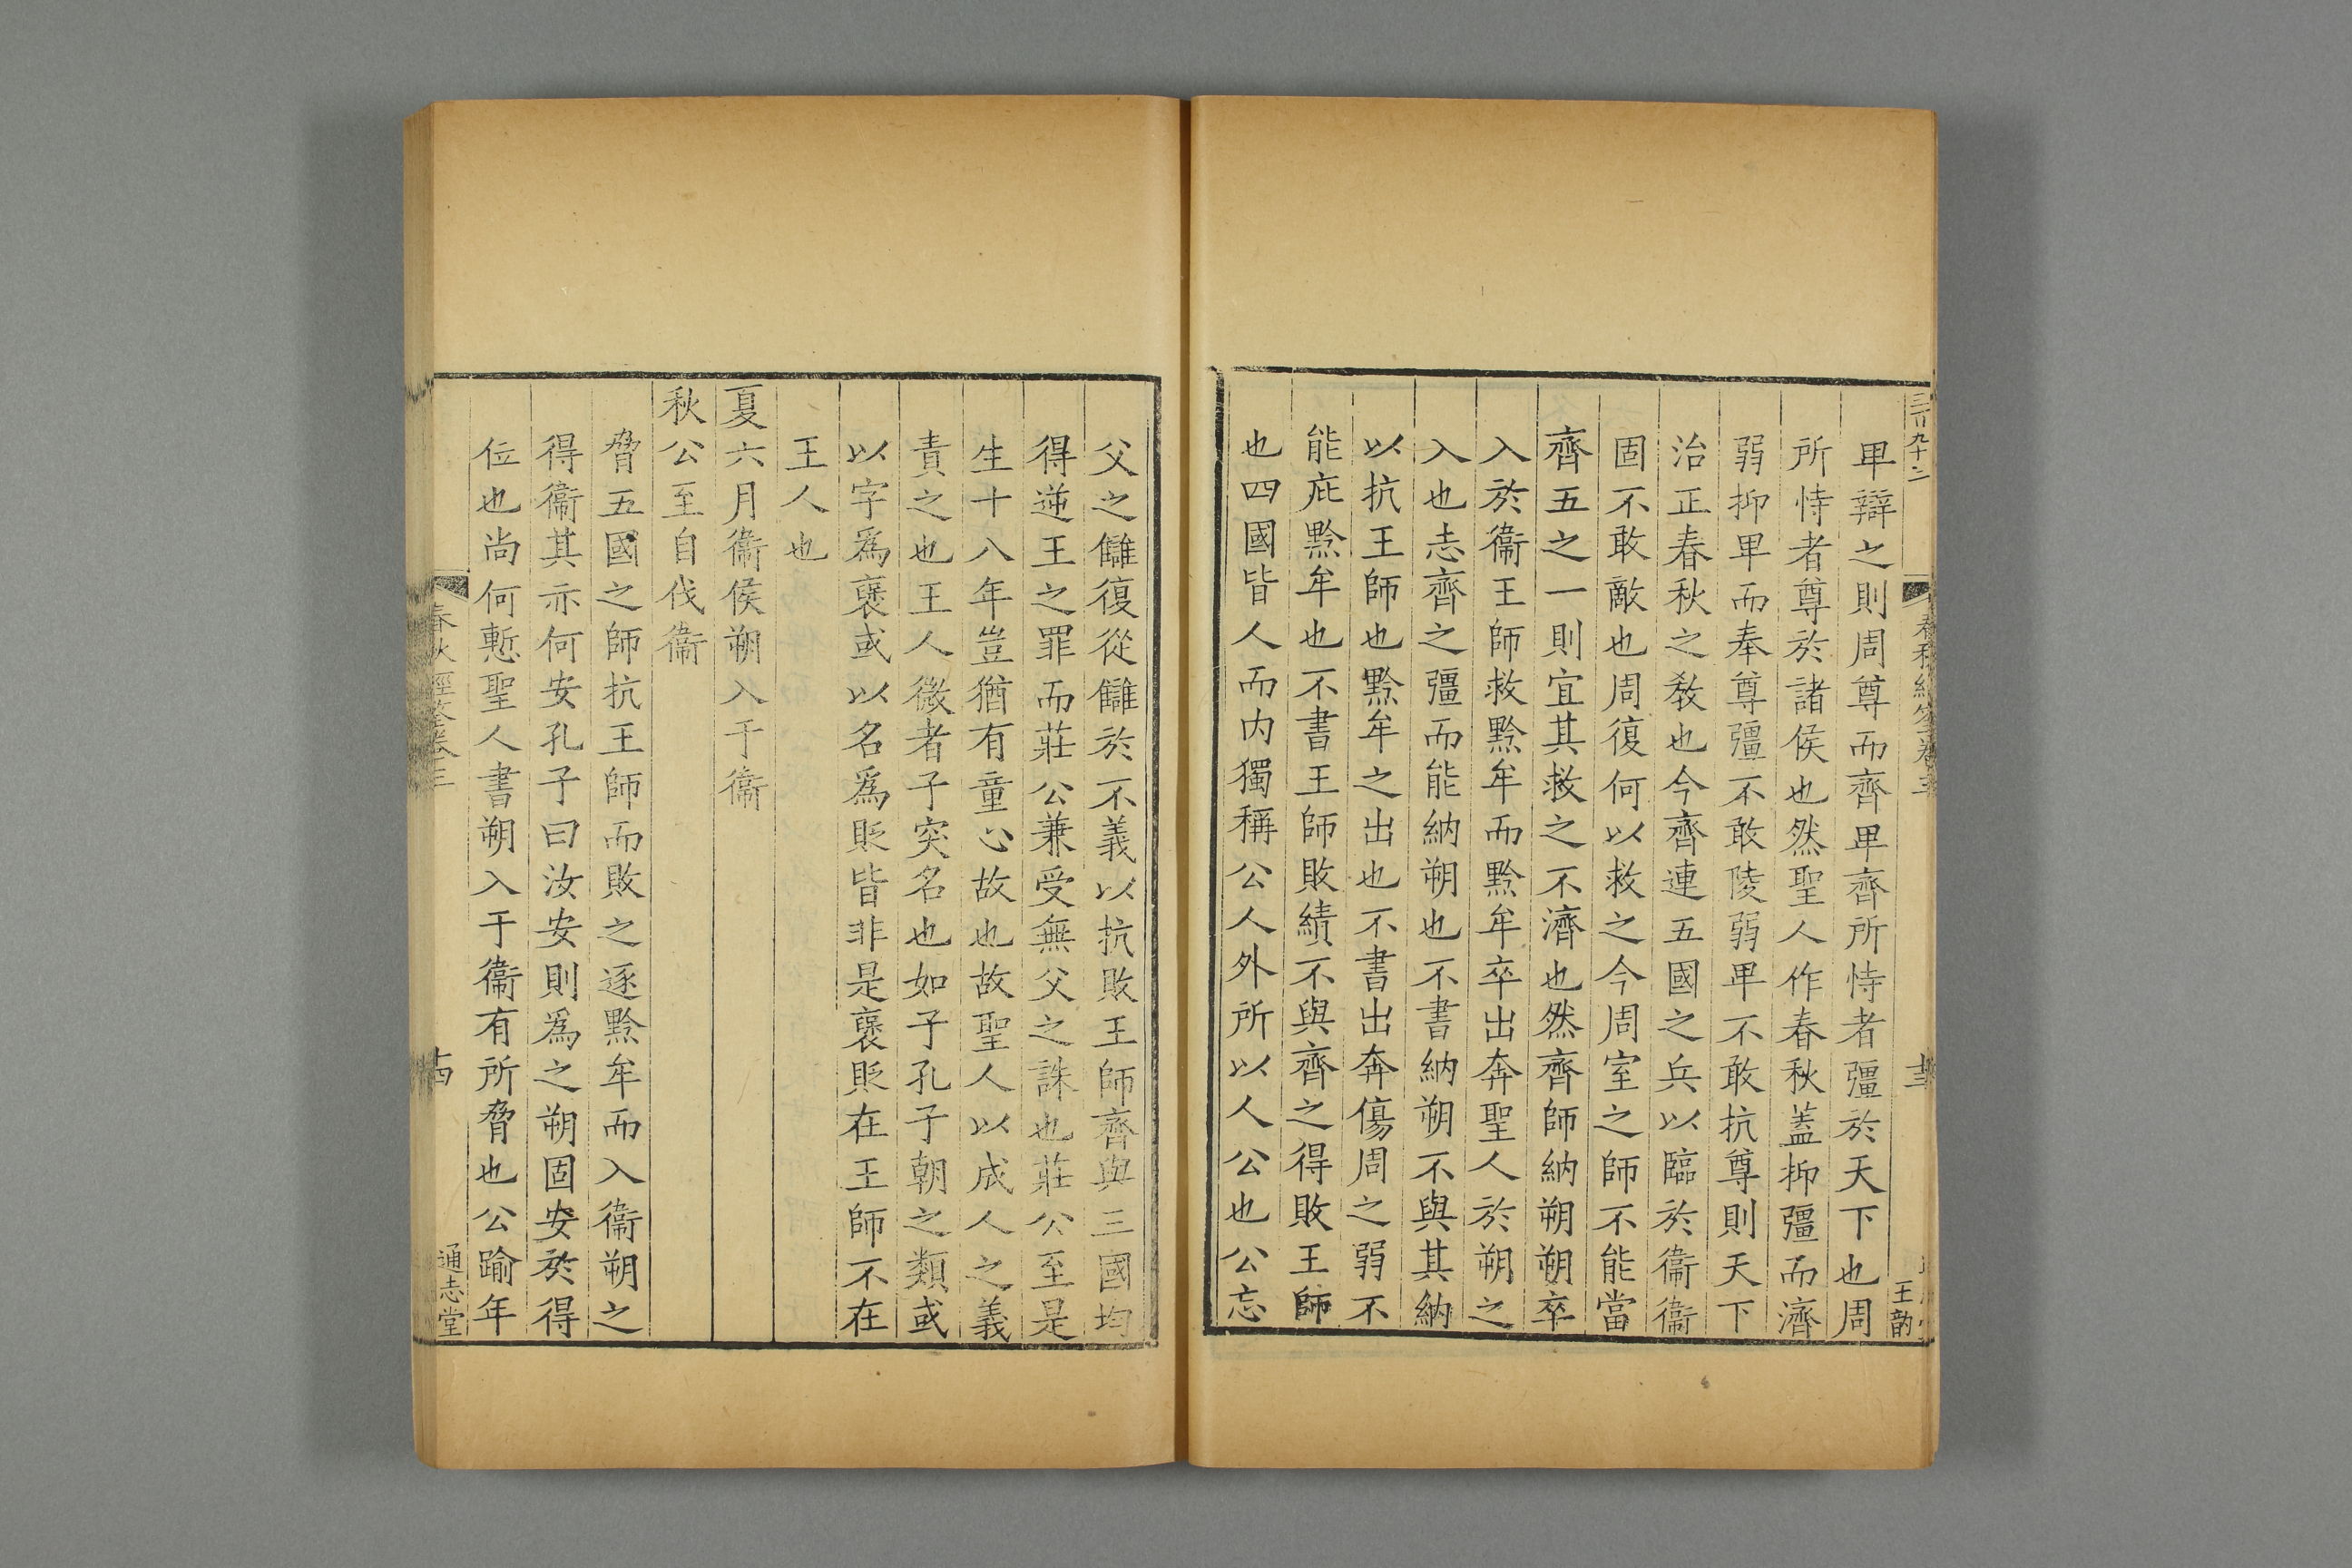 三百九十二
春秋經筌卷三
十三
王韵
卑辯之則周尊而齊卑齊所恃者彊於天下也周
所恃者尊於諸侯也然聖人作春秋蓋抑彊而濟
弱抑卑而奉尊彊不敢陵弱卑不敢抗尊則天下
治正春秋之教也今齊連五國之兵以臨於衞衞
固不敢敵也周復何以救之今周室之師不能當
齊五之一則宜其救之不濟也然齊師納朔朔卒
入於衞王師救黔牟而黔牟卒出奔聖人於朔之
入也志齊之彊而能納朔也不書納朔不與其納
以抗王師也黔牟之出也不書出奔傷周之弱不
能庇黔牟也不書王師敗績不與齊之得敗王師
也四國皆人而内獨稱公人外所以人公也公忘
父之讎復從讎於不義以抗敗王師齊與三國均
得逆王之罪而莊公兼受無父之誅也莊公至是
生十八年豈猶有童心故也故聖人以成人之義
責之也王人微者子突名也如子孔子朝之類或
以字爲襃或以名爲貶皆非是襃貶在王師不在
王人也
夏六月衞侯朔入于衞
秋公至自伐衞
脅五國之師抗王師而敗之逐黔牟而入衞朔之
得衞其亦何安孔子曰汝安則爲之朔固安於得
位也尚何慙聖人書朔入于衞有所脅也公踰年
春秋經筌卷三
十四
通志堂